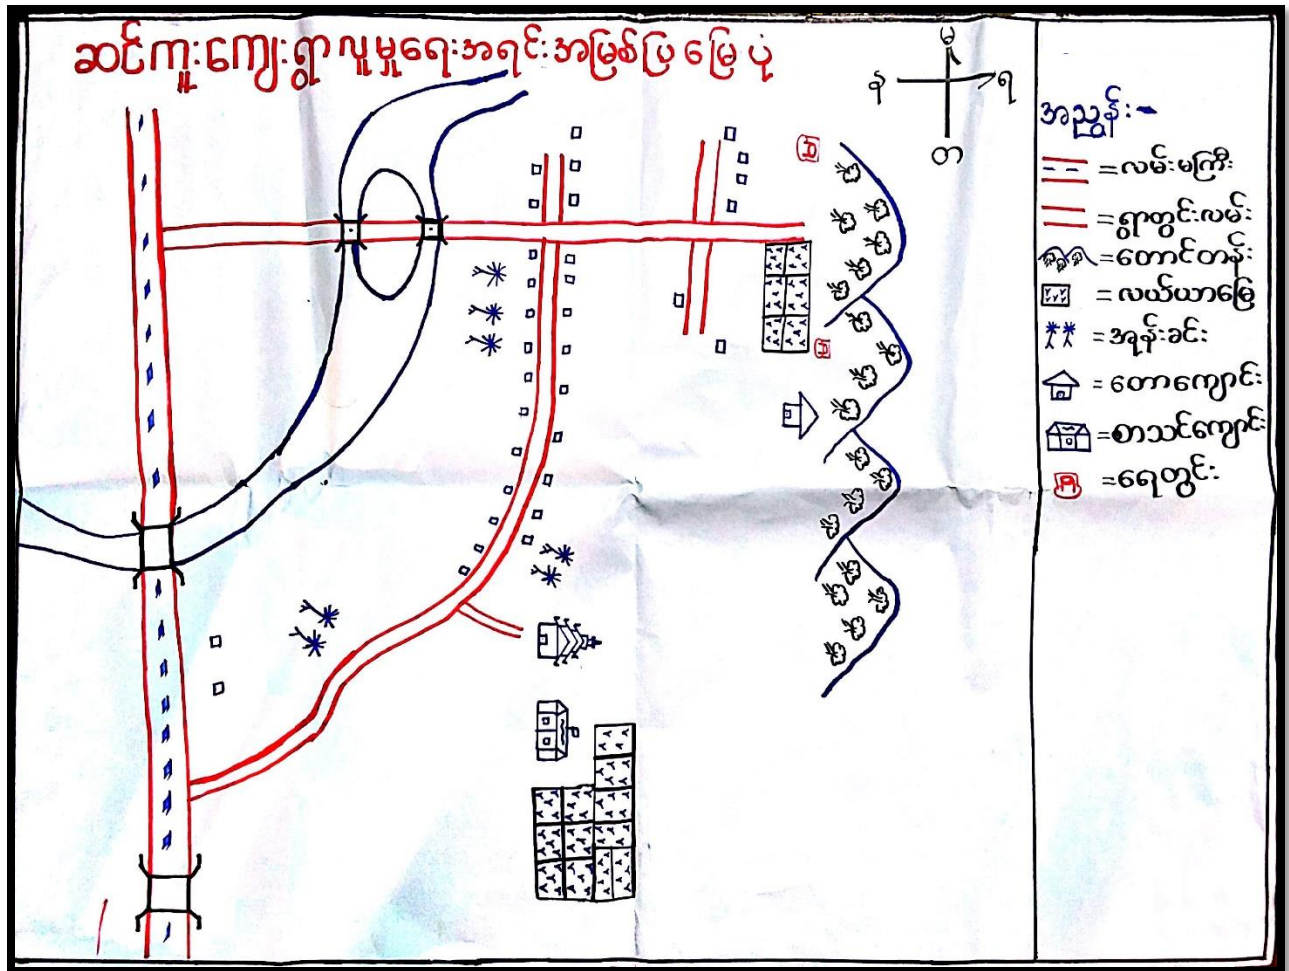 ဆင်ကူးကျေးရွာလူမှုရေးအရင်းအမြစ်ပြမြေပုံ
မ
န ရ
တ
အညွှန်း-
=လမ်းမကြီး
=ရွာတွင်းလမ်း
=တောင်တန်း
=လယ်ယာမြေ
=အုန်းခင်း
=တောကျောင်း
=စာသင်ကျောင်း
=ရေတွင်း